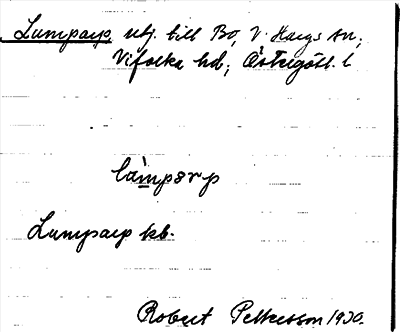 Lumparp, utj. till Bo, V. Hargs sn,
Vifolka hd; Östergötl. l
lam̀parp
Lumparp kb.
Robert Pettersson 1930.